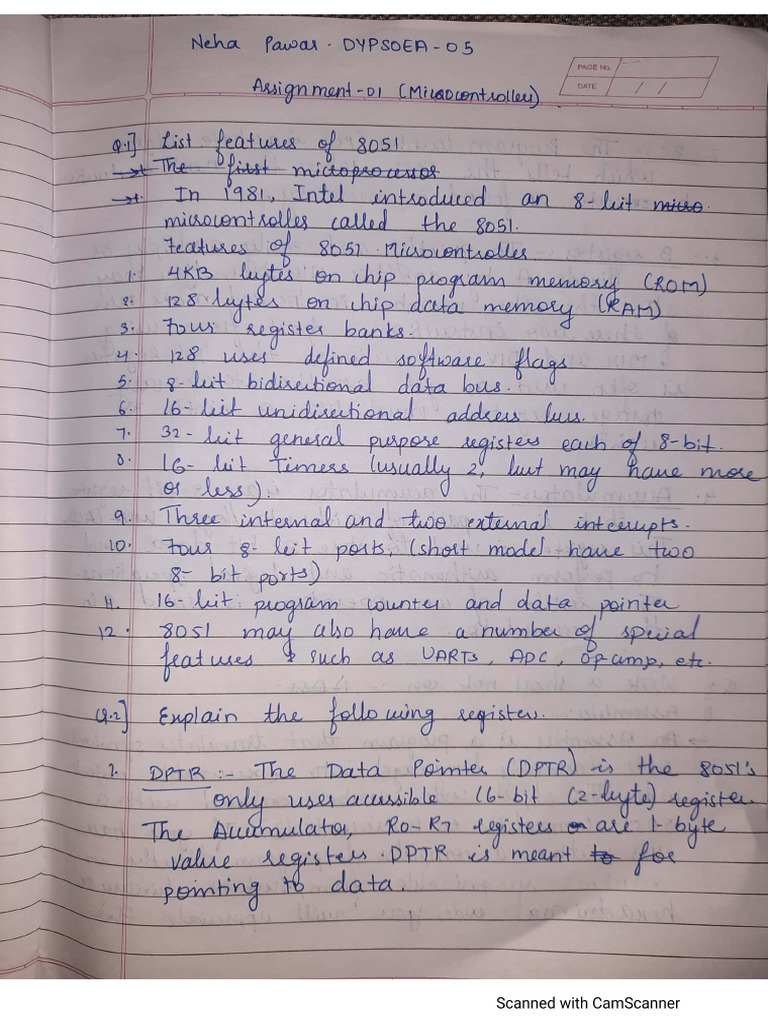 Neha Pawar. DYPSOEA-05
PAGE No.
DATE / /
Assignment-01 (Microcontroller)
Q.1] List features of 8051
→ The first microprocessor
→ In 1981, Intel introduced an 8-bit micro
microcontroller called the 8051.
Features of 8051 Microcontroller
1. 4KB bytes on chip program memory (ROM)
2. 128 bytes on chip data memory (RAM)
3. Four register banks.
4. 128 user defined software flags
5. 8-bit bidirectional data bus.
6. 16-bit unidirectional address bus.
7. 32-bit general purpose registers each of 8-bit.
8. 16-bit Timers (usually 2, but may have more
or less).
9. Three internal and two external interrupts.
10. Four 8-bit ports, (short model have two
8-bit ports)
11. 16-bit program counter and data pointer
12. 8051 may also have a number of special
features such as UARTs, ADC, Op amp, etc.
Q.2] Explain the following register.
1. DPTR :- The Data Pointer (DPTR) is the 8051's
only user accessible 16-bit (2-byte) register.
The Accumulator, R0-R7 registers or are 1-byte
value registers. DPTR is meant to for
pointing to data.
Scanned with CamScanner